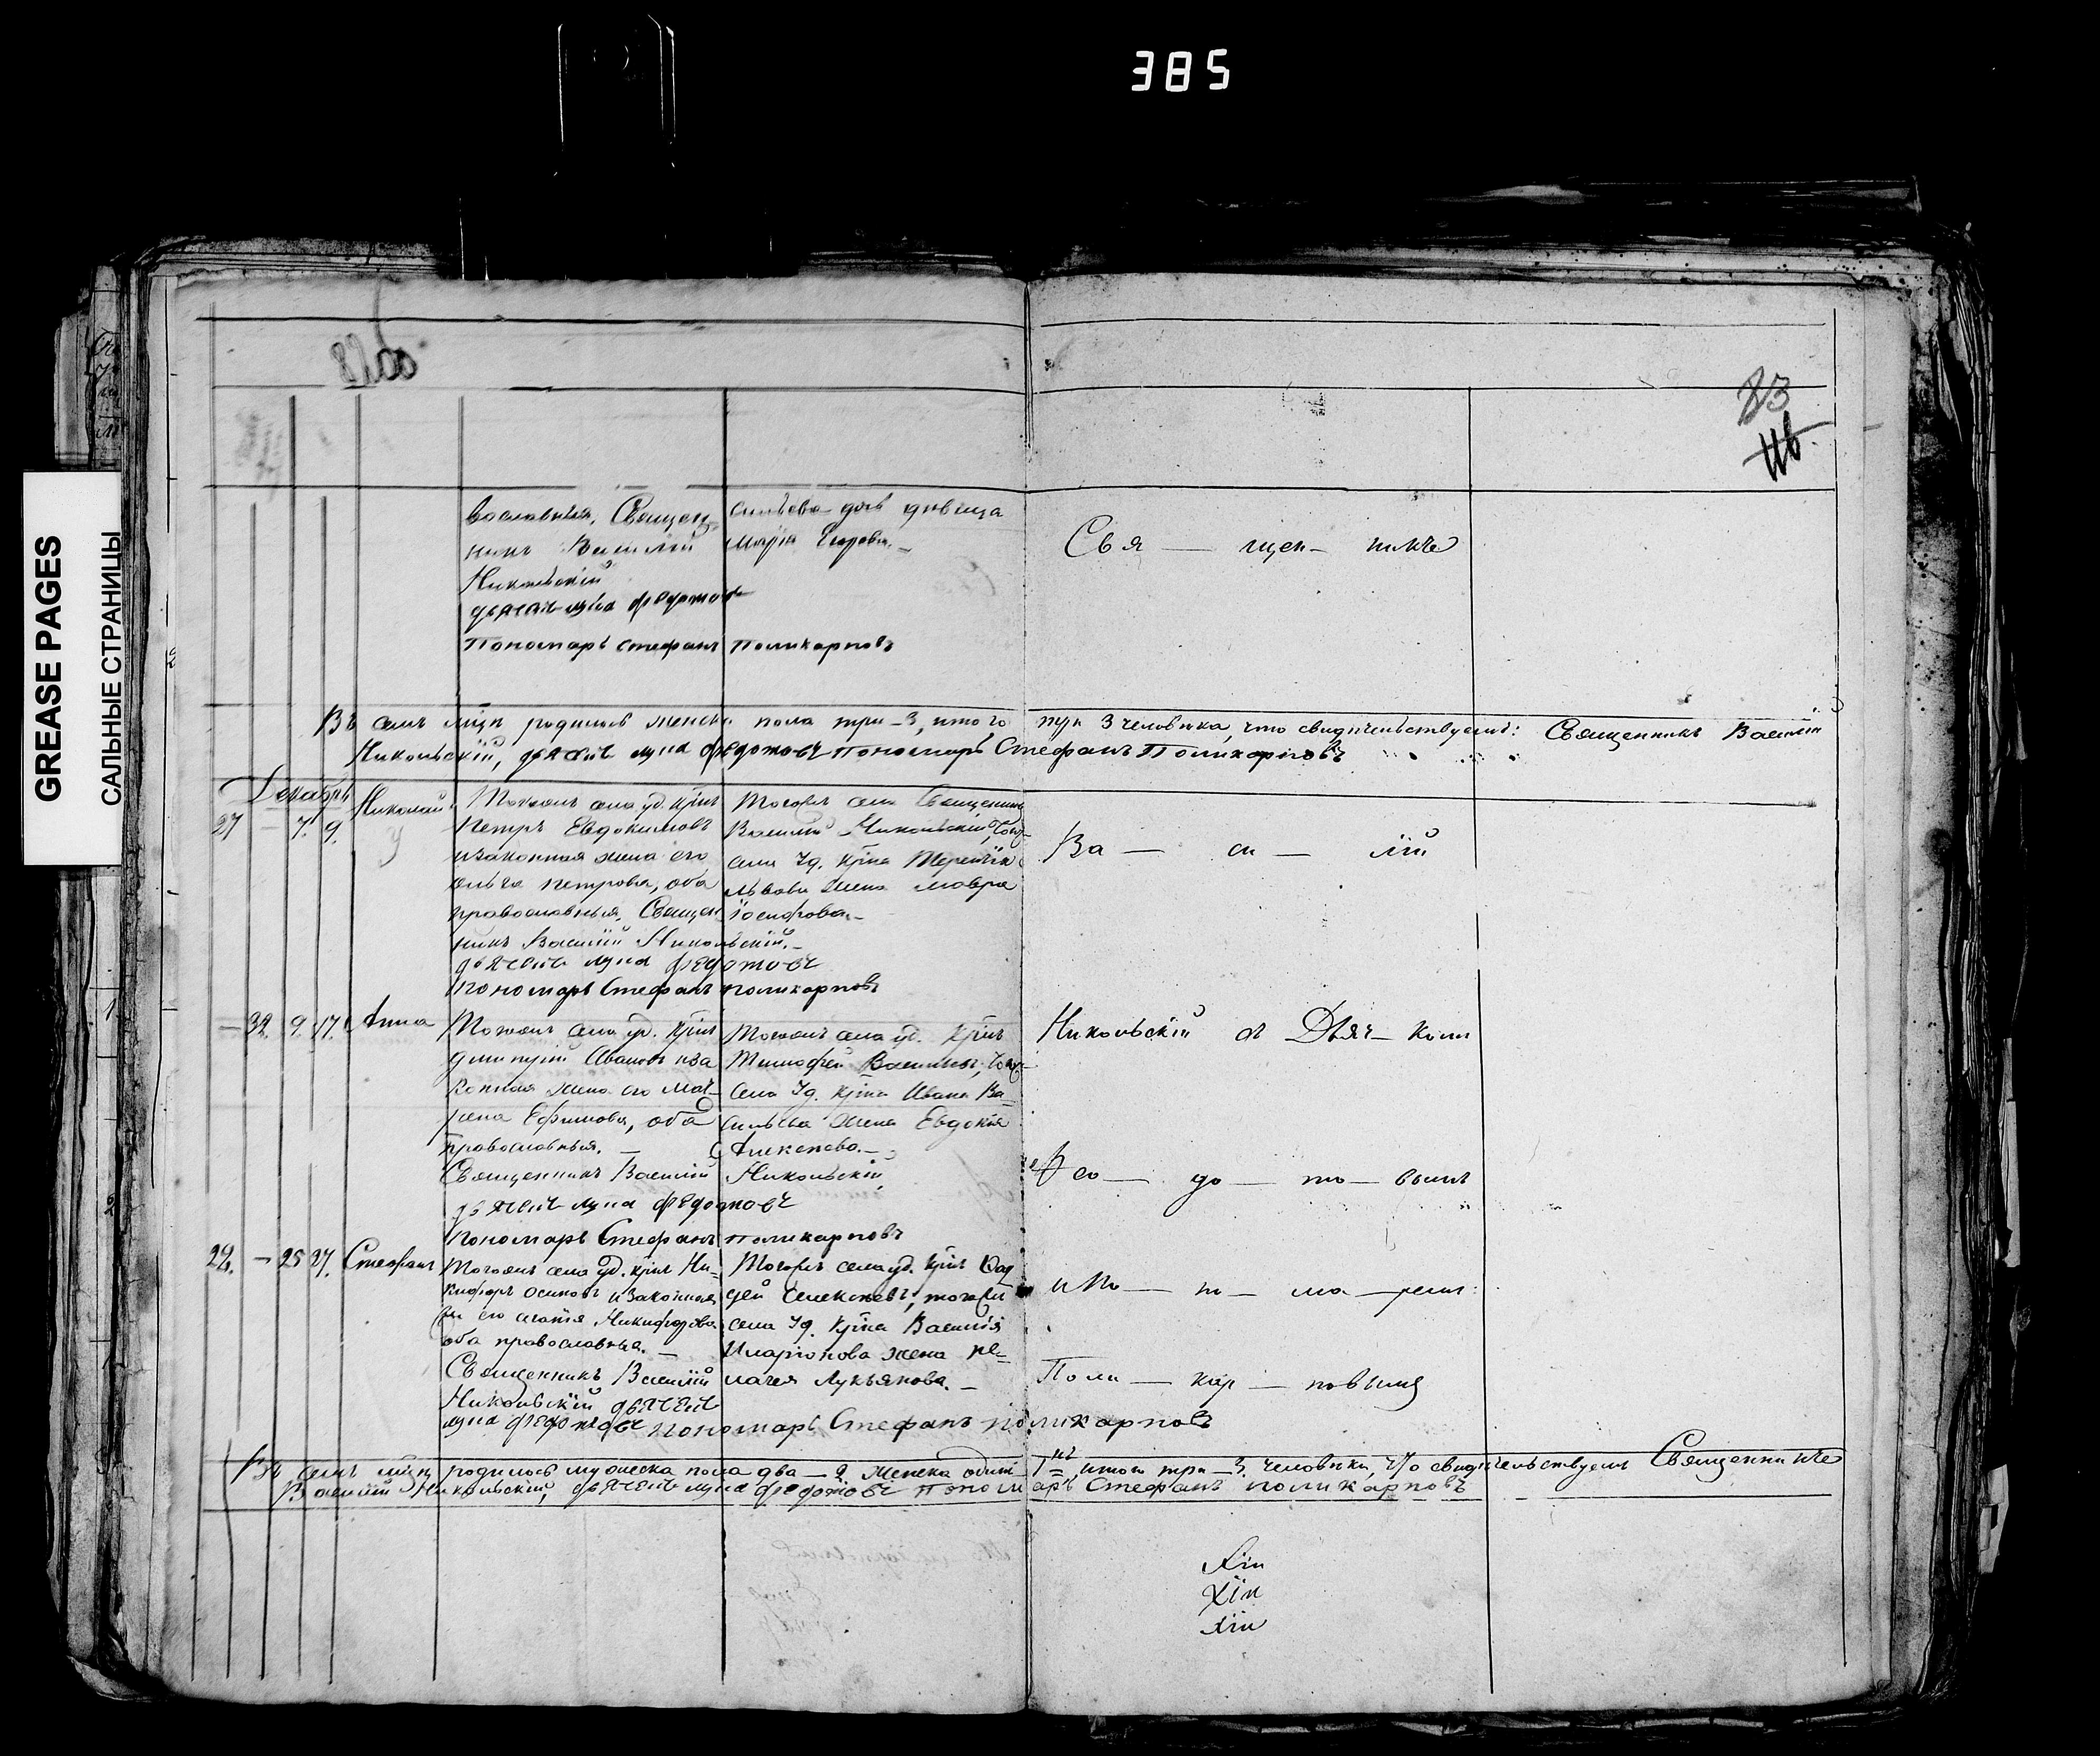 385
GREASE PAGES
САЛЬНЫЕ СТРАНИЦЫ
83
вославныя. Священ
никъ Василій
Никольскій
дьячекъ лука федотовъ
Пономарь Стефанъ Поликарповъ
сильева дочь девица
Марія Егорова.
Свя — щен — никъ
Въ семъ мцѣ родилось женска пола три - 3, итого три 3 человѣка, что свидѣтельствуемъ: Священникъ Василій
Никольскій, дьячекъ лука федотовъ пономарь Стефанъ Поликарповъ
Декабрь
27 — 7. 9. Николай
Тогоже села уд. крнъ
Петръ Евдокимовъ
и законная жена его
Петрова, оба
православныя. Священ
никъ Василій Никольскій.
дьячекъ лука федотовъ
пономарь Стефанъ поликарповъ
Тогоже села Священникъ
Василій Никольскій,
села Уд. крна
жена мавра
Іосифова.
Ва — си — лій
— 32. 9. 17. Анна
Тогоже села уд. крнъ
Ивановъ и за
конная жена его Мат
рена Ефимова, оба
православныя. —
Священникъ Василій Никольскій
дьячекъ лука федотовъ
пономарь Стефанъ поликарповъ
Тогоже села уд. крнъ
Тимофей Васильевъ,
села Уд. крна Ивана Ва
сильева жена Евдокія
Алексеева. —
Никольскій съ Дьяч — комъ
Фео — до — то — вымъ
28. — 25 27. Стефанъ
Тогоже села уд. крнъ Ни
кифоръ Осиповъ и законная
его Никифорова
оба православныя. —
Священникъ Василій
Никольскій дьячекъ
лука федотовъ пономарь Стефанъ поликарповъ
Тогоже села уд. крнъ
Алексеевъ, тогоже
села Уд. крна Василія
Иларіонова жена Пе
лагея Лукьянова. —
и По — но — ма — ремъ
Поли — кар — повымъ
Въ семъ мцѣ родилось мужеска пола два — 2. женска одинъ — 1, итого три — 3. человѣка, что свидѣтельствуемъ Священникъ
Василій Никольскій, дьячекъ лука федотовъ пономарь Стефанъ поликарповъ